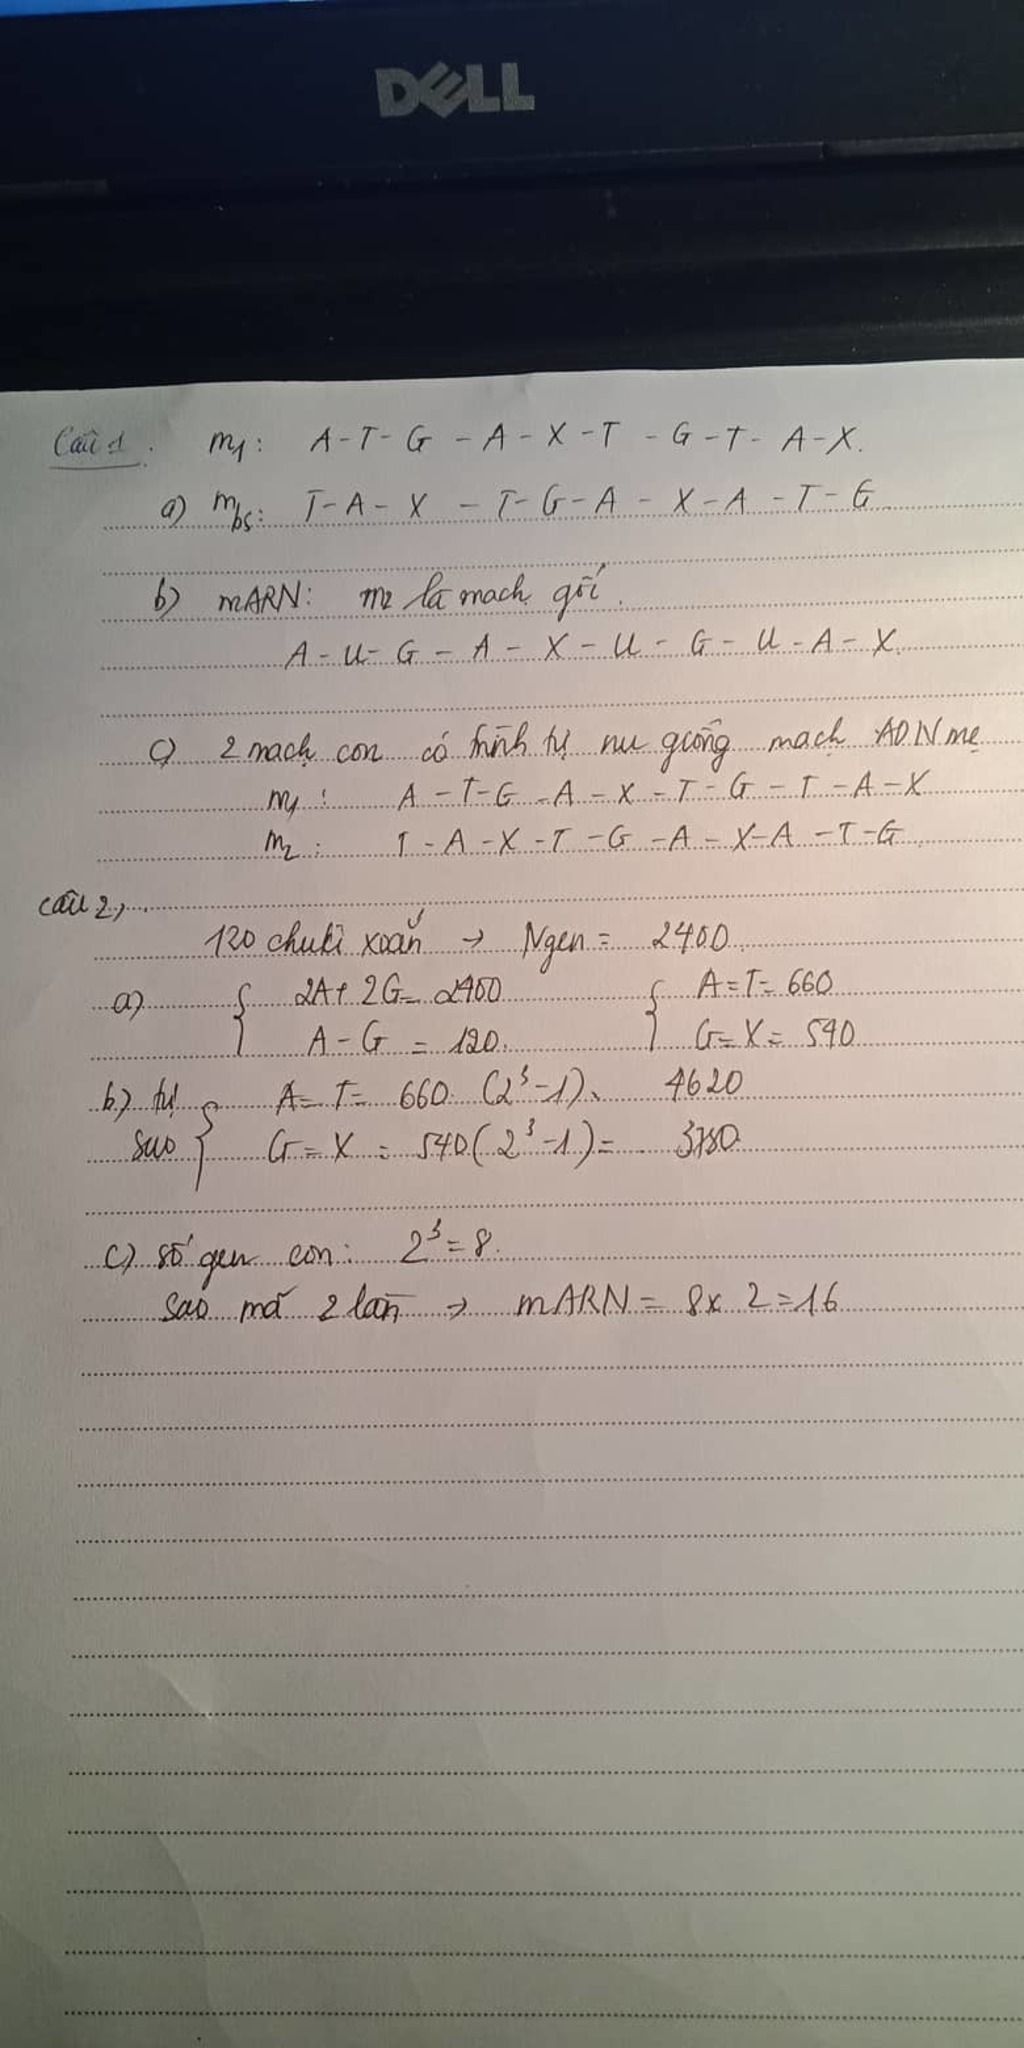 DELL
Câu 1. m1: A-T-G-A-X-T-G-T-A-X.
a) mbs: T-A-X-T-G-A-X-A-T-G
b) mARN: m2 là mạch gốc.
A-U-G-A-X-U-G-U-A-X.
c) 2 mạch con có trình tự nu giống mạch ADN mẹ
m1: A-T-G-A-X-T-G-T-A-X
m2: T-A-X-T-G-A-X-A-T-G
câu 2,
120 chu kì xoắn → Ngen = 2400
a) { 2A + 2G = 2400 { A=T=660
A-G = 120. G=X=540
b) tự { A=T= 660.(2³-1) 4620
sao G=X=540(2³-1)= 3780
c) số gen con: 2³=8.
sao mã 2 lần → mARN = 8x2=16